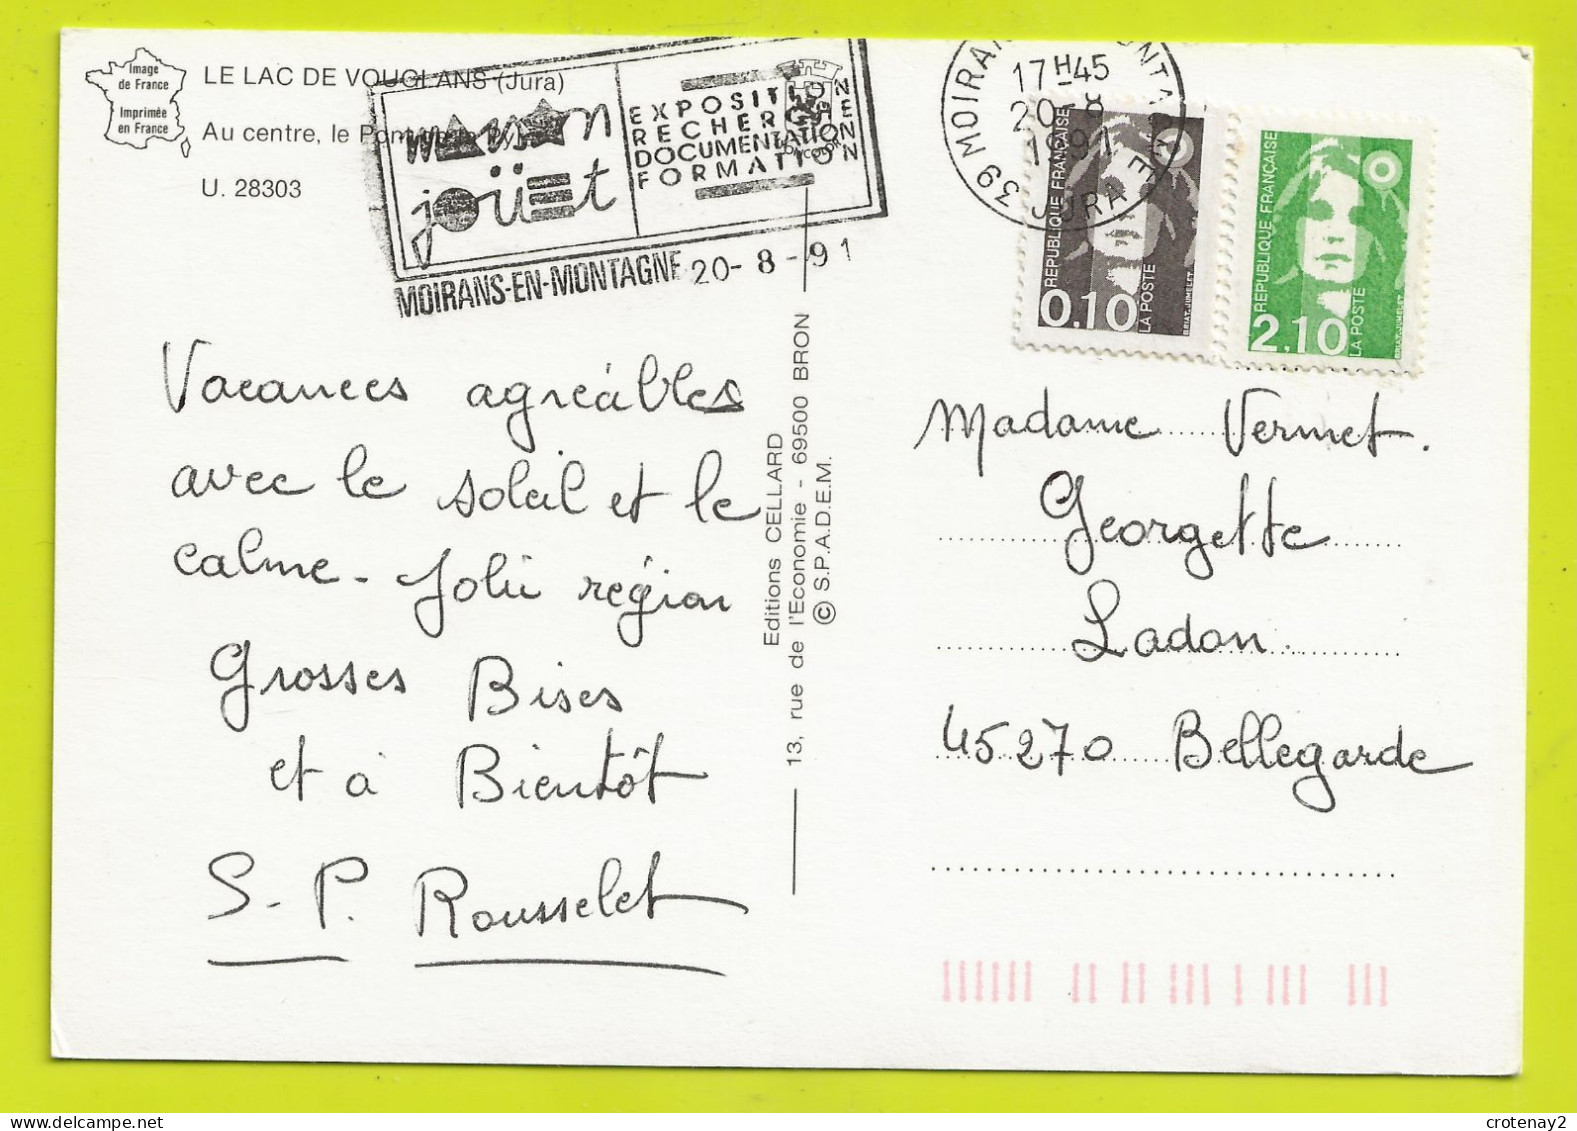 Image
de France
Imprimée
en France
LE LAC DE VOUGLANS (Jura)
Au centre, le Pont de la Pyle
U. 28303
maison
jouet
EXPOSITION
RECHERCHE
DOCUMENTATION
FORMATION
MOIRANS-EN-MONTAGNE 20-8-91
39 MOIRANS EN MONTAGNE
17H45
20-8
1991
JURA
REPUBLIQUE FRANÇAISE
0.10
LA POSTE
BRIAT-JUMELET
REPUBLIQUE FRANÇAISE
2.10
LA POSTE
BRIAT-JUMELET
Vacances agréables
avec le soleil et le
calme - Jolie région
Grosses Bises
et à Bientôt
S-P. Rousselet
Editions CELLARD
13, rue de l'Economie - 69500 BRON
© S.P.A.D.E.M.
Madame Vermet.
Georgette
Ladon.
45270 Bellegarde
crotenay2